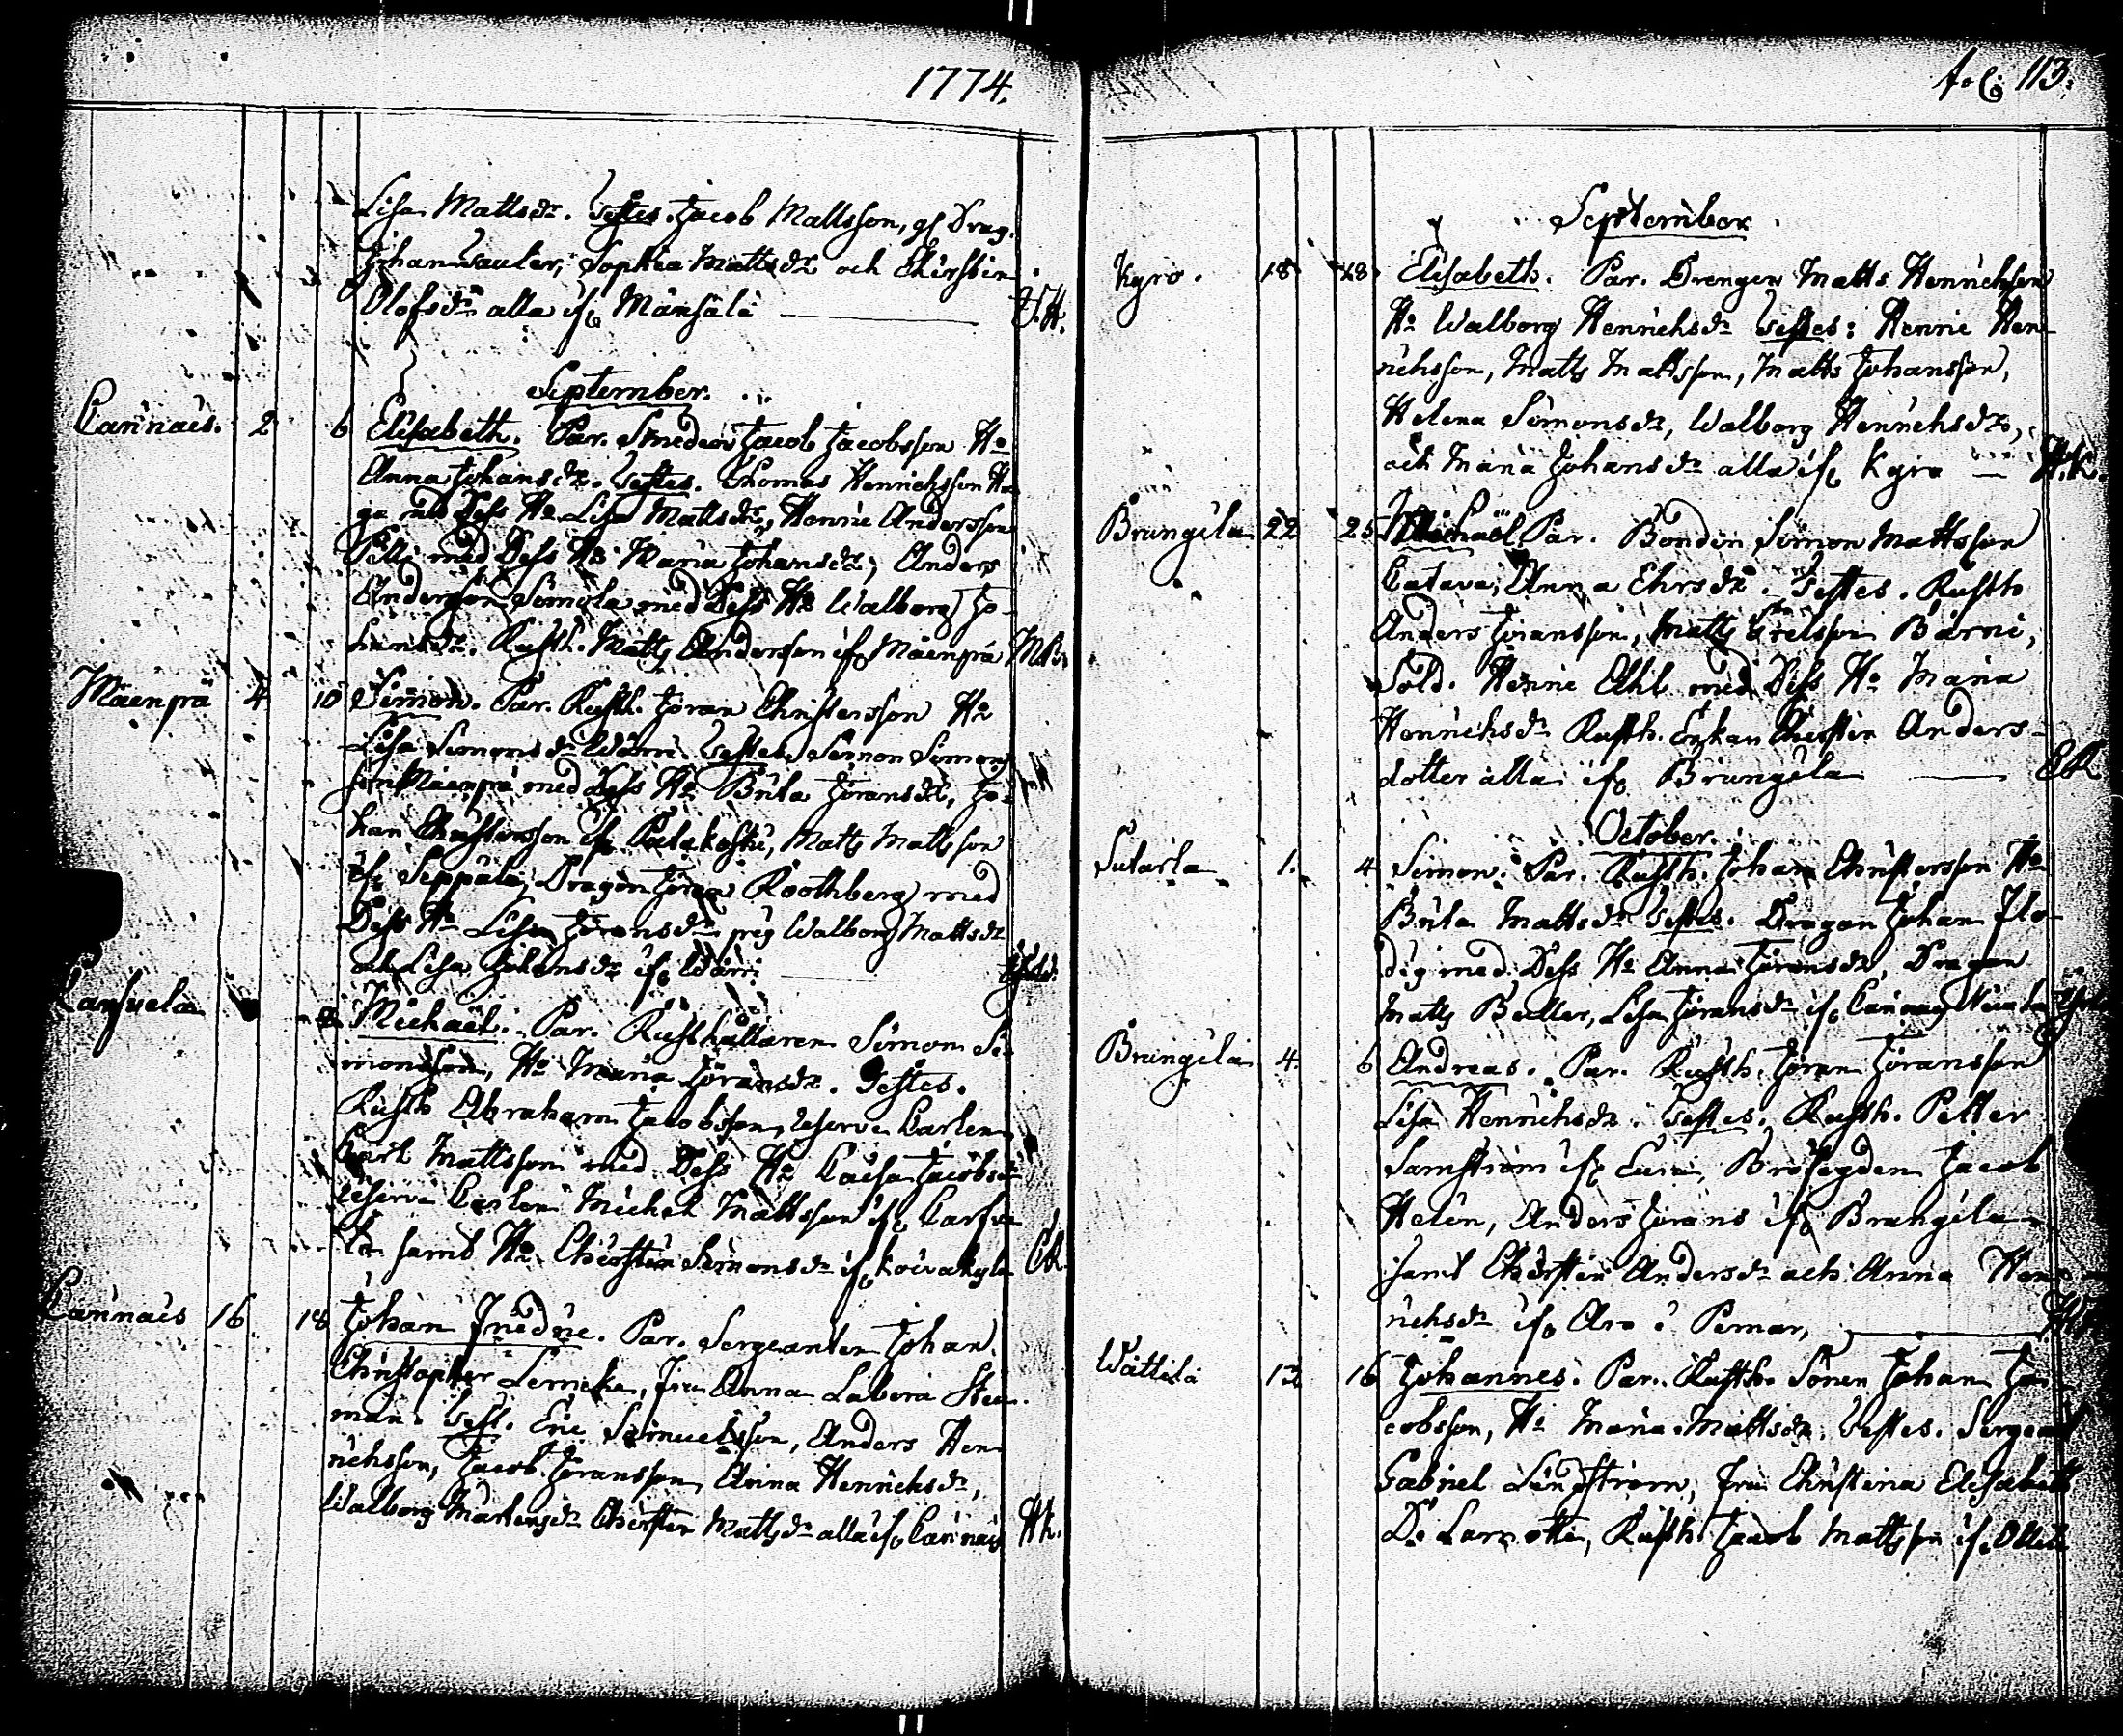 1774.
Lisa Mattsdr. Testes. Jacob Mattsson, gl Drag.
Johan Sauler, Sophia Mattsdr och Chirstin
Olofsdr alla if. Mänsälä J.H.
September.
Carinais. 2 6 Elisabeth. Par. Smeden Jacob Jacobsson Ho
Anna Johansdr. Testes. Thomas Henrichsson Ha
ga med Dess Ho Lisa Mattsdr, Henric Andersson
Pelli med Dess Ho Maria Johansdr, Anders
Andersson Simola med Dess Ho Walborg Jo-
hansdr. Rusth. Matts Andersson if. Mäenpä
Mäenpä 4 10 Simon. Par. Rusth. Jöran Christersson Ho
Lisa Simonsdr Wärri. Testes. Simon Simons
son Mäenpä med Dess Ho Brita Jöransdr, Jo-
han Christersson if. Palakoski, Matts Mattsson
if. Seppälä, Dragon Jöran Roothberg med
Dess Ho Lisa Jöransdr, pig Walborg Mattsdr
och Lisa Johansdr if. Wärri
Carsuela Michaël. Par. Rusthållaren Simon Si-
monsson, Ho Maria Jöransdr. Testes.
Rusth Abraham Jacobsson, reserve Carlen
Carl Mattsson med Dess Ho Caisa Jacobsdr
reserve Carlen Michel Mattsson if. Carsue
la samt Ho Chirstin Simonsdr if. Koivukylä CR
Carinais 16 18 Johan Fredric. Par. Sergeanten Johan
Christopher Lemcke, Fru Anna Labera Steu-
man. Test. Eric Samuelsson, Anders Hen-
richsson, Jacob Jöransson, Anna Henrichsdr,
Walborg Mårtensdr Chirstin Mattsdr alla if. Carinais HK.
fol: 113.
September
Kyro. 18 18 Elisabeth. Par. Drengen Matts Henrichsson
Ho Walborg Henrichsdr Testes: Henric Hen-
richsson, Matts Mattsson, Matts Johansson,
Helena Simonsdr, Walborg Henrichsdr,
och Maria Johansdr alla if. Kyro H.K.
Brungila 22 25 Michaël Par. Bonden Simon Mattsson
Catava, Anna Ehrsdr. Testes. Rusth
Anders Jöransson, Matts Grelsson Bärni,
Sold. Henric Ahl med Dess Ho Maria
Henrichsdr Rusth. Enkan Chirstin Anders-
dotter alla if. Brungila CR
October.
Sutarla 1. 4 Simon. Par. Rusth. Johan Christersson Ho
Brita Mattsdr Testes. Dragon Johan Flo-
dig med Dess Ho Anna Jöransdr, Dragon
Matts Buller, Lisa Jöransdr if. Carinais
Brungila 4. 6 Andreas. Par. Rusth. Jöran Jöransson
Lisa Henrichsdr. Testes. Rusth. Petter
Samström if. Eura, Brofogden Jacob
Helin, Anders Jörans if. Brungila
samt Chirstin Andersdr och Anna Hen-
richsdr if. Aro i Pemar,
Wättilä 12 16 Johannes. Par. Rusth. Sonen Johan Ja-
cobsson, Ho Maria Mattsdr. Testes. Sergeant
Gabriel Lindström, Fru Christina Elisabeth
De Lamotte, Rusth. Jacob Mattsson if. Ollila